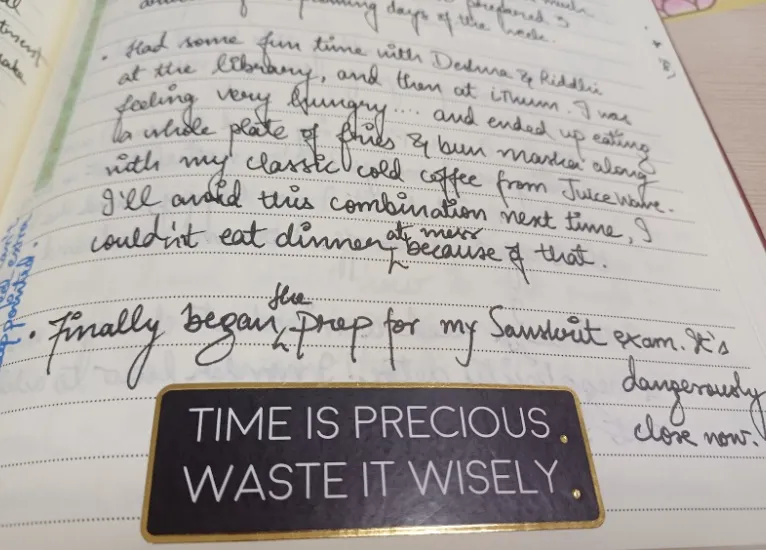 prepared
coming days of the week.
• Had some fun time with & Riddhi
at the library, and then at iThum. I was
feeling very hungry.... and ended up eating
a whole plate of fries & bun maska along
with my classic cold coffee from JuiceWave.
I'll avoid this combination next time, I
couldn't eat dinner at mess because of that.
• Finally began the prep for my Sanskrit exam. It's
dangerously
close now.
TIME IS PRECIOUS.
WASTE IT WISELY.